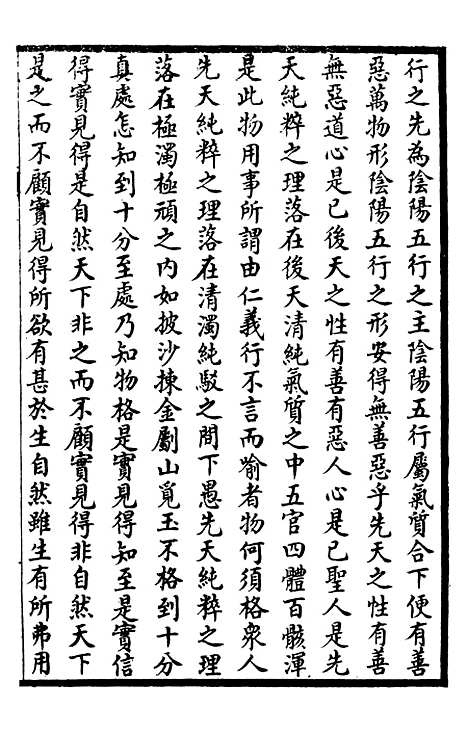 行之先為陰陽五行之主陰陽五行屬氣質合下便有善
惡萬物形陰陽五行之形安得無善惡乎先天之性有善
無惡道心是已後天之性有善有惡人心是已聖人是先
天純粹之理落在後天清純氣質之中五官四體百骸渾
是此物用事所謂由仁義行不言而喻者物何須格衆人
先天純粹之理落在清濁純駁之間下愚先天純粹之理
落在極濁極頑之內如披沙揀金劚山覓玉不格到十分
真處怎知到十分至處乃知物格是實見得知至是實信
得實見得是自然天下非之而不顧實見得非自然天下
是之而不顧實見得所欲有甚於生自然雖生有所弗用